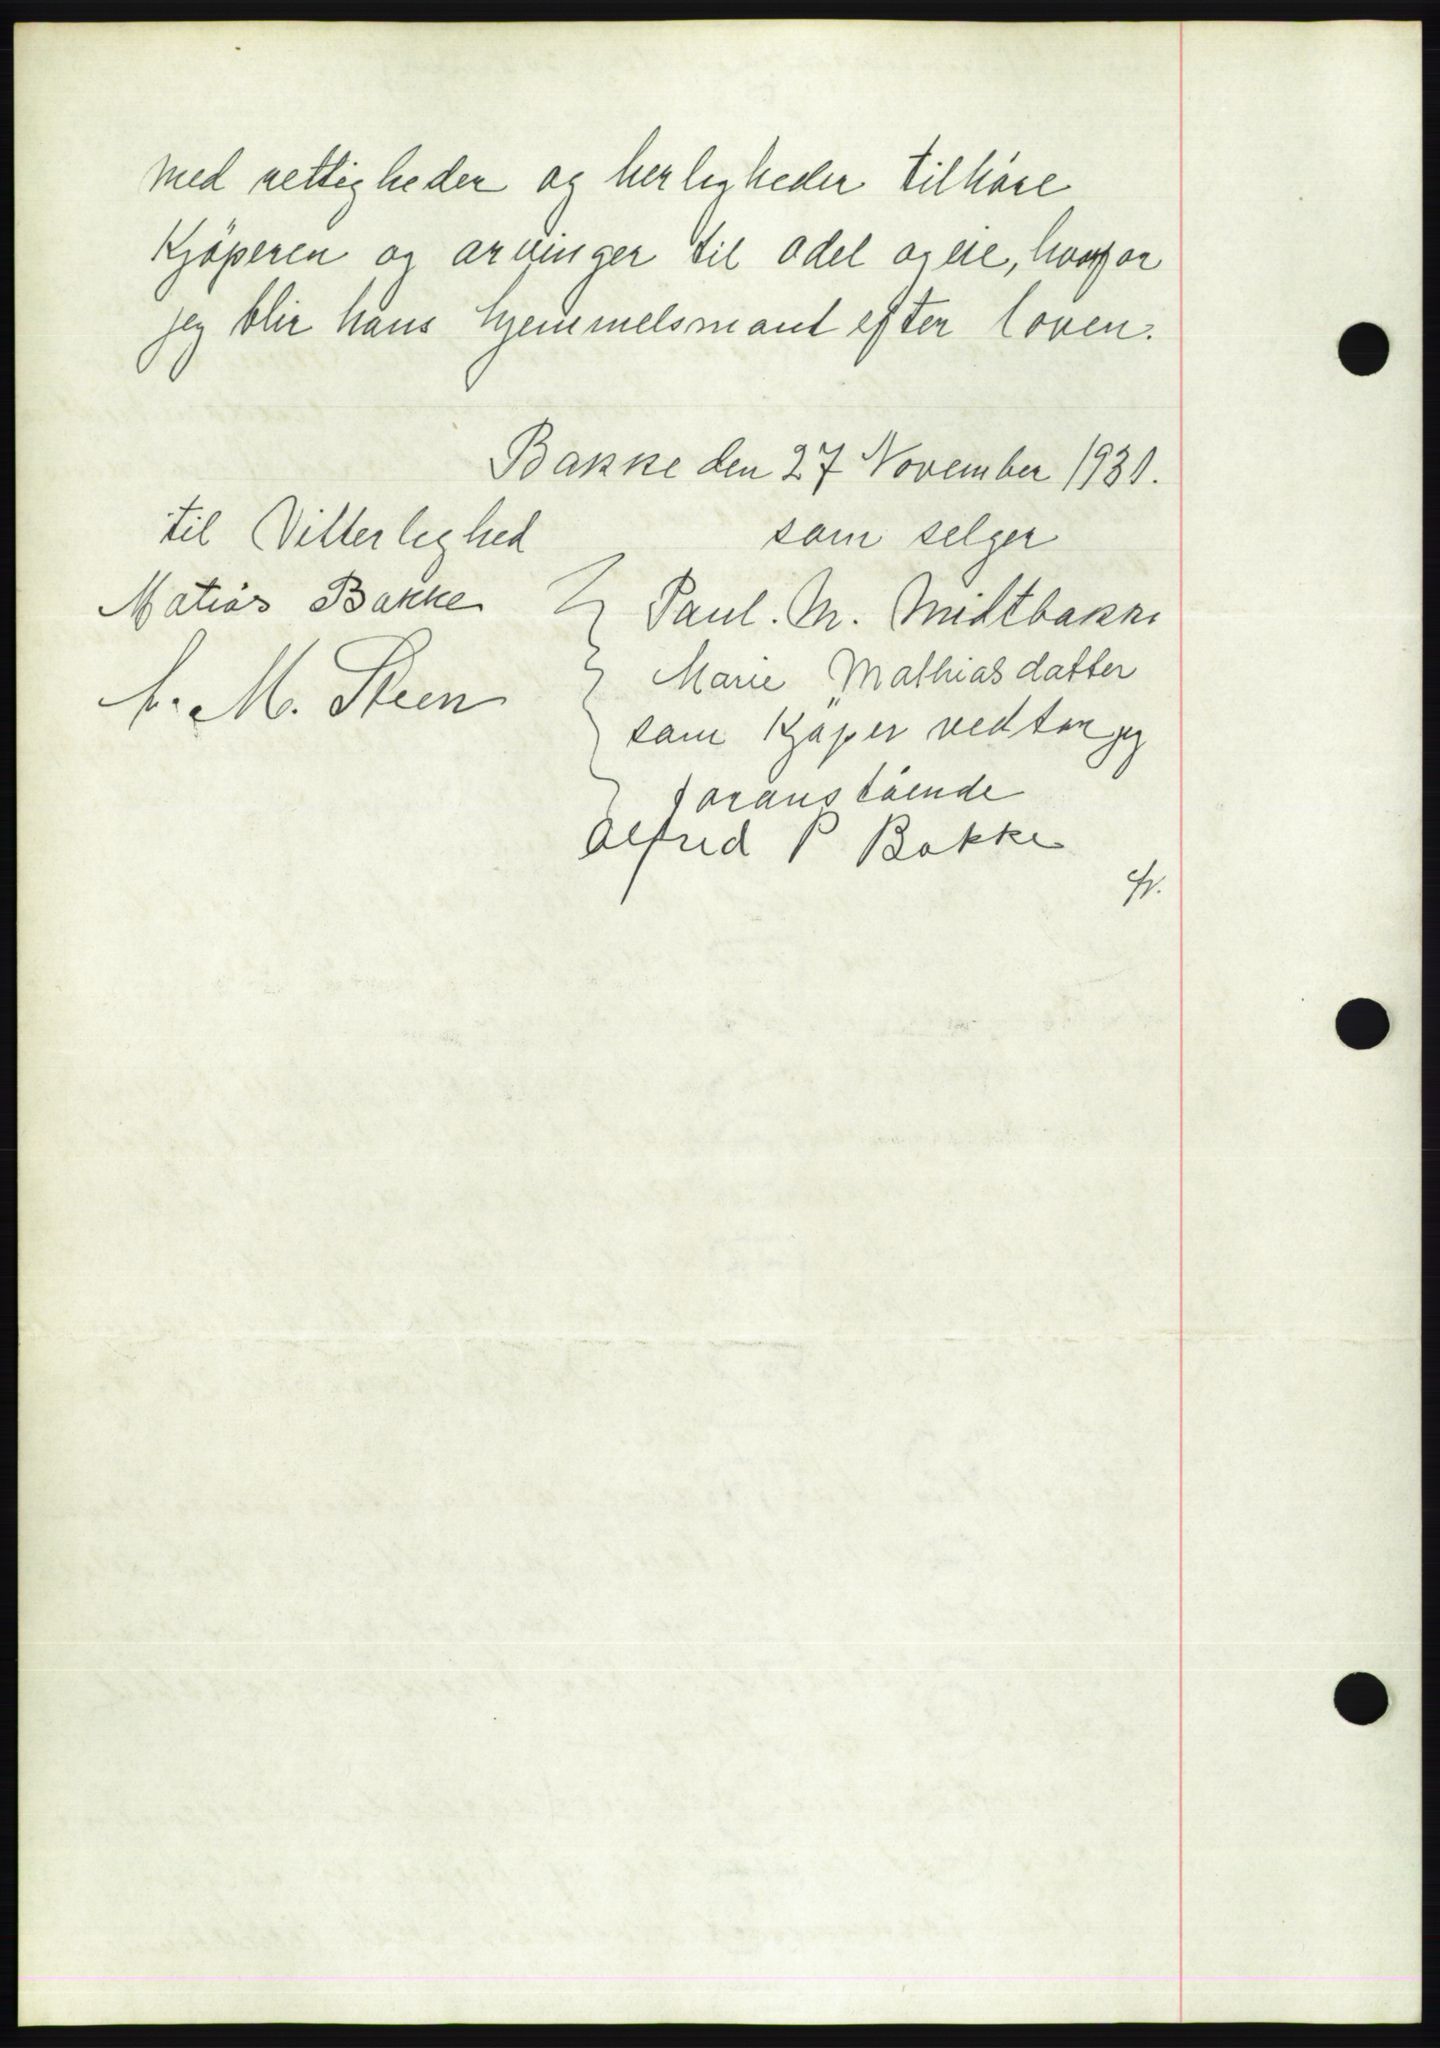 med rettigheder og herligheder tilhöre
Kjöperen og arvinger til odel og eie, hvorfor
jeg blir hans hjemmelsmand efter loven.
Bakke den 27 November 1931.
til Vitterlighed som selger
Matias Bakke Paul. M. Midtbakke
M. Steen Marie Mathiasdatter
som Kjöper vedtar jeg
foranstående
Alfred P Bakke